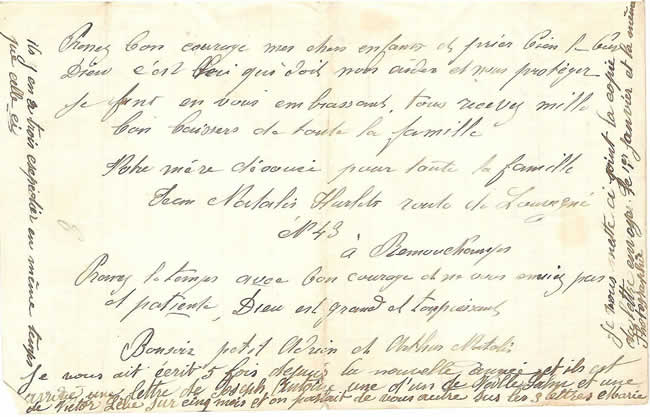 Prenez bon courage mes chers enfants et prier bien le bon
Dieu c'est lui qui doit nous aider et nous protéger
Je finit en vous embrassant, tous recevez mille
bon baisers de toute la famille
Votre mère dévouée pour toute la famille
Jean Natalis route de Louvegné
N° 43
à Remouchamps
Prenez le temps avec bon courage et ne vous ennuiez pas
et patiente, Dieu est grand et toupuissant
Bonsoir petit Adrien et Arthur Natalis
Je vous ait écrit 5 fois depuis la nouvelle année et ils est
arrivé une lettre de Joseph Antoine une d'un de et une
de Victor sur cinq mois et on parlait de vous autre sur les 3 lettres Marie
ils y en a trois en même temps
que celle-ci
Je vous mette à point la copie
de lettre le 19 Janvier et la même
Photographie